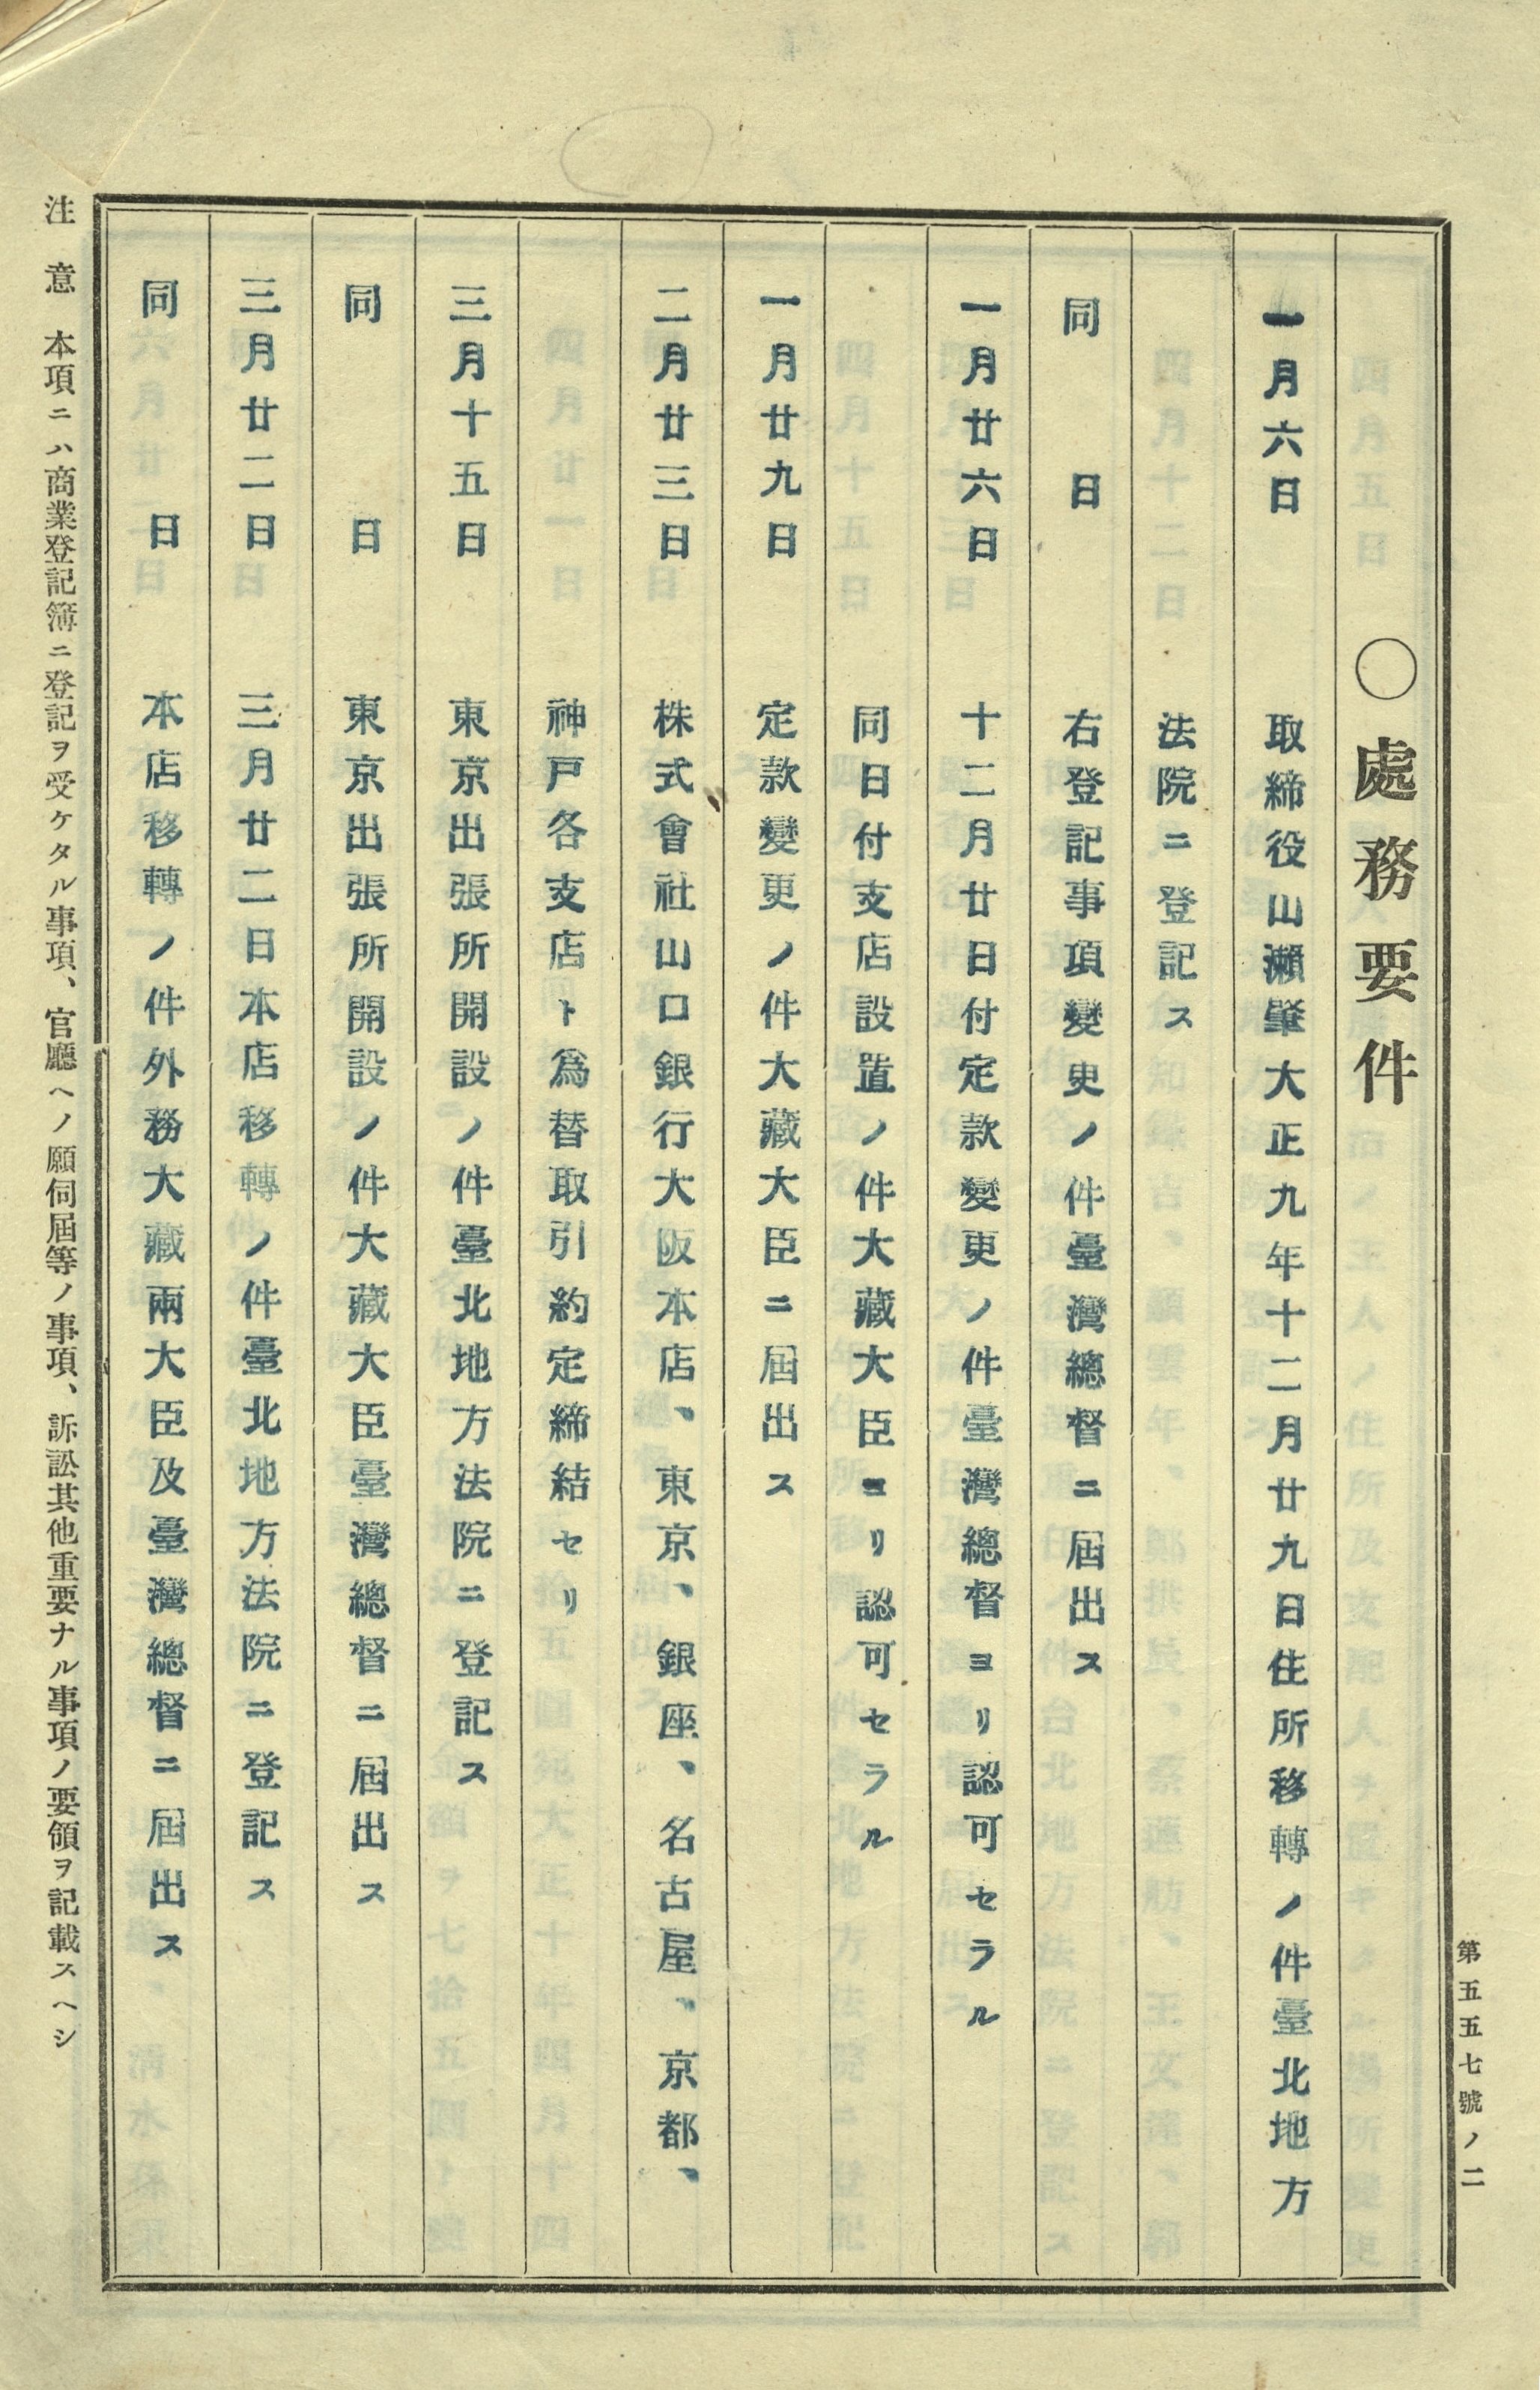 第五五七號ノ二
〇處務要件
一月六日　取締役山瀬肇大正九年十二月廿九日住所移轉ノ件臺北地方
法院ニ登記ス
同日　右登記事項變更ノ件臺灣總督ニ屆出ス
一月廿六日　十二月廿日付定款變更ノ件臺灣總督ヨリ認可セラル
同日付支店設置ノ件大藏大臣ヨリ認可セラル
一月廿九日　定款變更ノ件大藏大臣ニ屆出ス
二月廿三日　株式會社山口銀行大阪本店、東京、銀座、名古屋、京都、
神戸各支店ト爲替取引約定締結セリ
三月十五日　東京出張所開設ノ件臺北地方法院ニ登記ス
同日　東京出張所開設ノ件大藏大臣臺灣總督ニ屆出ス
三月廿二日　三月廿二日本店移轉ノ件臺北地方法院ニ登記ス
同日　本店移轉ノ件外務大藏兩大臣及臺灣總督ニ屆出ス
注意　本項ニハ商業登記簿ニ登記ヲ受ケタル事項、官廳ヘノ願伺屆等ノ事項、訴訟其他重要ナル事項ノ要領ヲ記載スヘシ